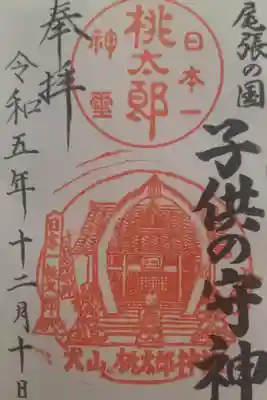 尾張の国
子供の守神
日本一
桃太郎
神霊
奉拝
令和五年十二月十日
犬山 桃太郎神社